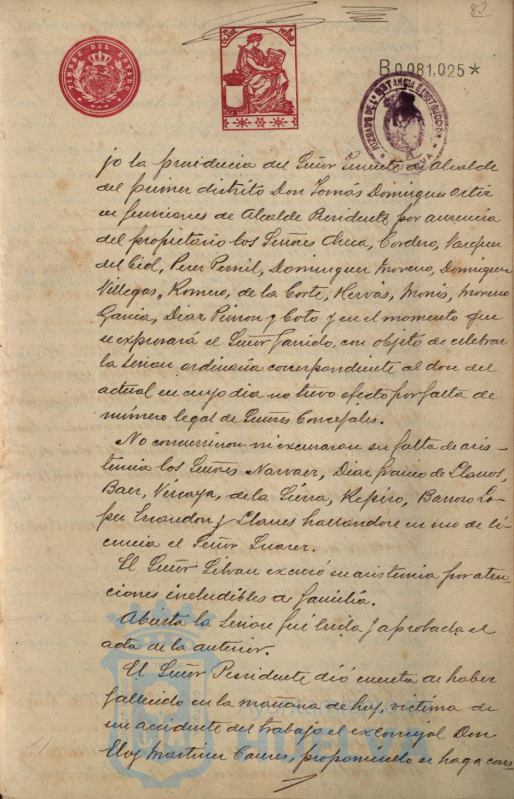 82
TIMBRE DEL ESTADO
B0.081.025*
JUZGADO DE 1ª INSTANCIA E INSTRUCCION
HUELVA
jo la presidencia del Señor Teniente de Alcalde
del primer distrito Don Tomás Dominguez Ortiz
en funciones de Alcalde Presidente por ausencia
del propietario los Señores Checa, Cordero, Vazquez
del Cid, Perez Pernil, Dominguez Moreno, Dominguez
Villegas, Romero, de la Corte, Hervás, Monis, Moreno
Garcia, Diaz Pinzon y Coto y en el momento que
se expresará el Señor Garrido, con objeto de celebrar
la sesion ordinaria correspondiente al dos del
actual en cuyo dia no tuvo efecto por falta de
número legal de Señores Concejales.
No concurrieron ni excusaron su falta de asis-
tencia los Señores Narvaez, Diaz Franco de Llanos,
Baez, Vizcaya, de la Sierra, Repiso, Barroso Lo-
pez Escandon y Claves hallandose en uso de li-
cencia el Señor Suarez.
El Señor Silvan excusó su asistencia por aten-
ciones ineludibles de familia.
Abierta la sesion fue leida y aprobada el
acta de la anterior.
El Señor Presidente dió cuenta de haber
fallecido en la mañana de hoy, victima de
un accidente del trabajo el exconcejal Don
Eloy Martinez Caceres, proponiendo se haga cons
HUELVA